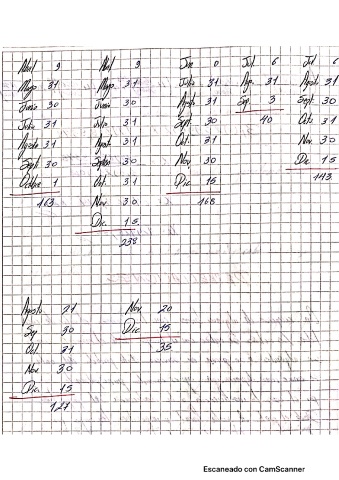 Abril 9
Mayo 31
Junio 30
Julio 31
Agosto 31
Sept. 30
Octubre 1
163
Abril 9
Mayo 31
Junio 30
Julio 31
Agost. 31
Septbr 30
Oct. 31
Nov. 30
Dic. 15
238
Jun 0
Julio 31
Agosto 31
Sept. 30
Oct. 31
Nov. 30
Dic. 15
168
Jul. 6
Ag. 31
Sep. 3
40
Jul 6
Agost. 31
Sept. 30
Oct. 31
Nov. 30
Dic 15
143
Agosto 21
Sep 30
Oct. 31
Nov 30
Dic. 15
127
Nov. 20
Dic 15
35
Escaneado con CamScanner